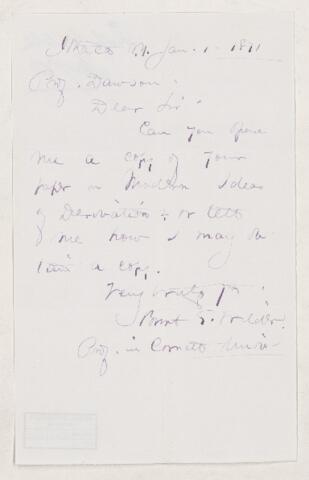 Ithaca N.Y. Jan. 1. 1871
Prof. Dawson.
Dear Sir
Can you spare
me a copy of your
paper on Modern Ideas
of Derivation & or tell
me how I may ob
tain a copy.
Very truly Yr
Burt G. Wilder.
Prof. in Cornell Univ.